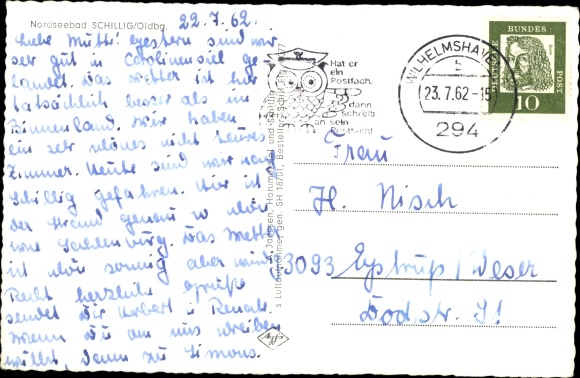 Nordseebad SCHILLIG/Oldbg.
22.7.62.
Liebe Mutti! Gestern sind wir
sehr gut in Carolinensiel ge
landet. Das Wetter ist hier
tatsächlich besser als im
Binnenland. Wir haben
ein sehr schönes nicht teures
Zimmer. Heute sind wir nach
Schillig gefahren. Hier ist
der Strand genau so schön
wie Das Wetter
ist schön sonnig aber windig
Recht herzliche Grüße
sendet Dir Herbert u Renate.
Wenn Du an uns schreiben
willst, dann zu Simons.
Hat er
ein
Postfach,
dann
schreib
an sein
Postfach!
WILHELMSHAVEN
23.7.62-15
294
DEUTSCHE BUNDESPOST
10
Frau
H. Nisch
3093 Eystrup/Weser